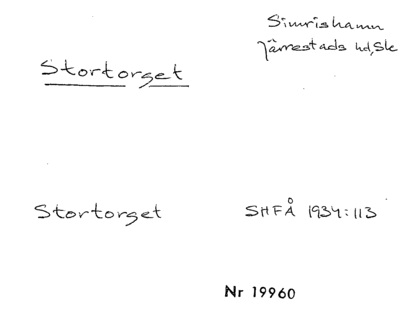 Simrishamn
Järrestads hd, Sk
Stortorget
Stortorget SHFÅ 1934:113
Nr 19960